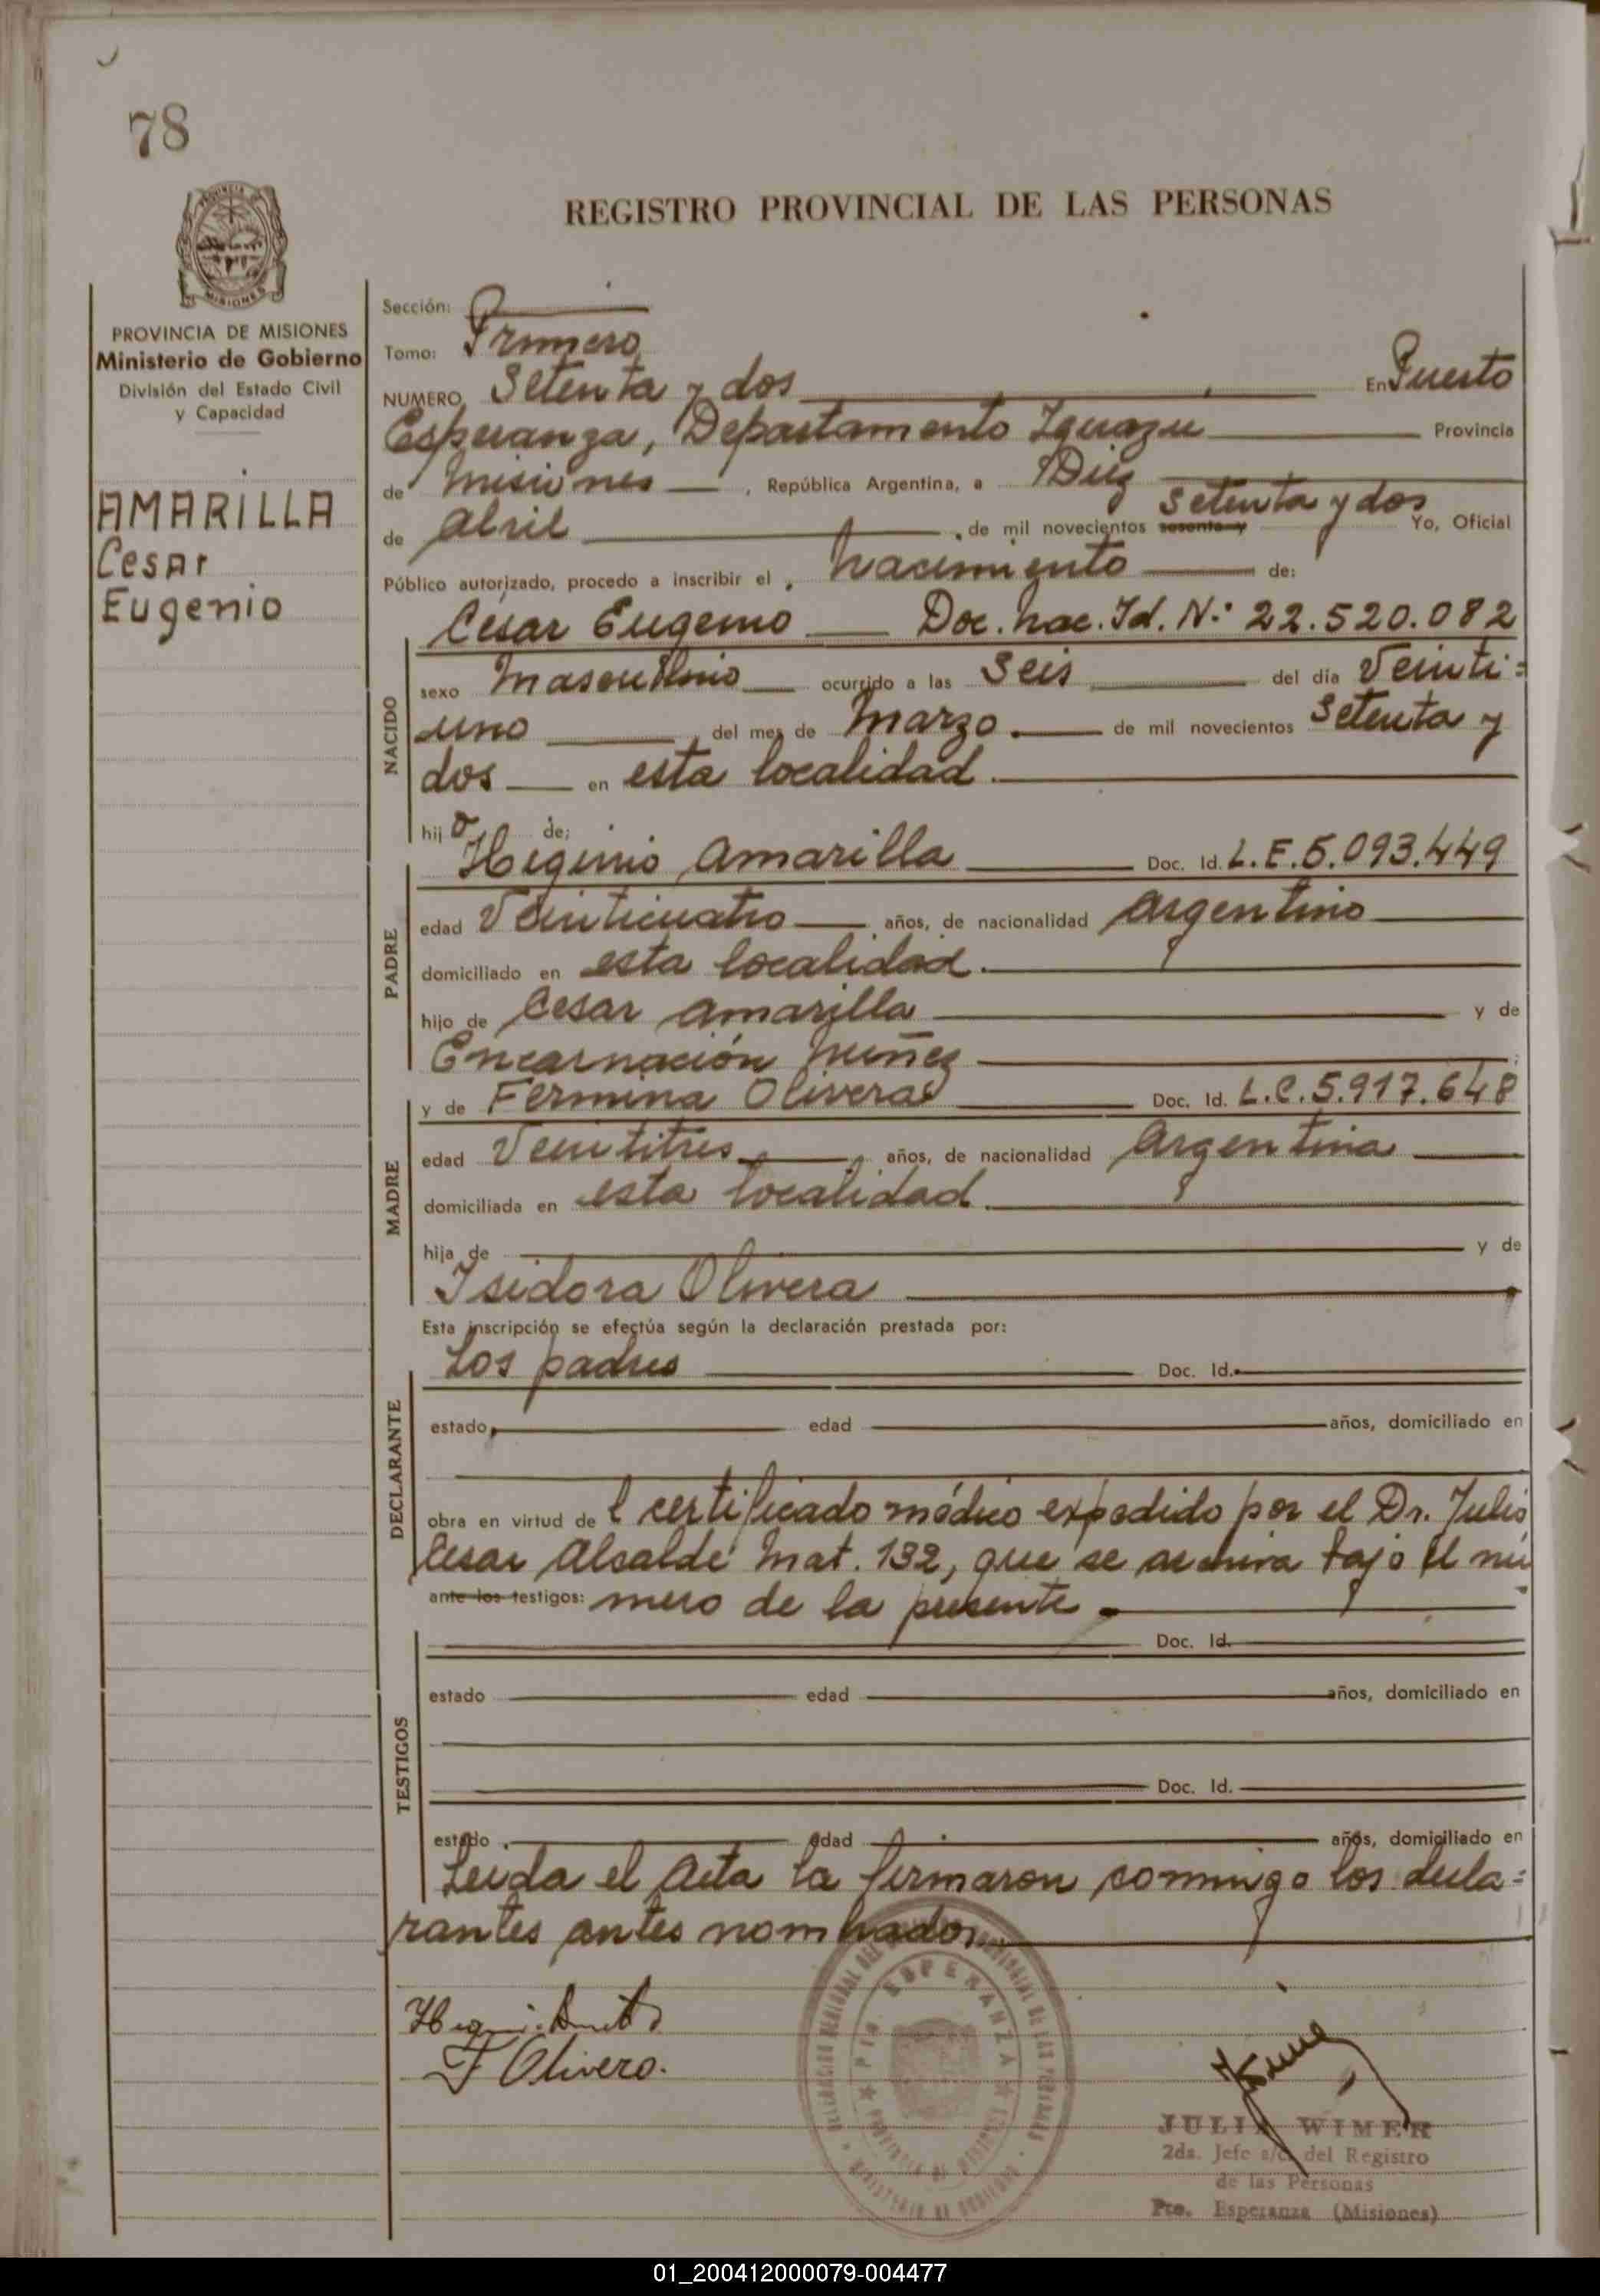 78
REGISTRO PROVINCIAL DE LAS PERSONAS
PROVINCIA DE MISIONES
Ministerio de Gobierno
División del Estado Civil
y Capacidad
AMARILLA
Cesar
Eugenio
Sección:
Tomo: Primero
NUMERO Setenta y dos En Puerto
Esperanza, Departamento Iguazu Provincia
de Misiones, República Argentina, a Diez
de Abril, de mil novecientos sesenta y setenta y dos Yo, Oficial
Público autorizado, procedo a inscribir el nacimiento de:
Cesar Eugenio Doc. Nac. Id. N: 22.520.082
NACIDO
sexo Masculino ocurrido a las Seis del día Veinti=
uno del mes de Marzo de mil novecientos Setenta y
dos en esta localidad.
hijo de:
PADRE
Higinio Amarilla Doc. Id. L.E.5.093.449
edad Veinticuatro años, de nacionalidad Argentino
domiciliado en esta localidad.
hijo de Cesar Amarilla y de
Encarnación Nuñez
MADRE
y de Fermina Olivera Doc. Id. L.C.5.917.648
edad Veintitres años, de nacionalidad Argentina
domiciliada en esta localidad.
hija de y de
Isidora Olivera
Esta inscripción se efectúa según la declaración prestada por:
DECLARANTE
Los padres Doc. Id.
estado edad años, domiciliado en
obra en virtud de l certificado médico expedido por el Dr. Julio
Cesar Alcalde Mat. 132, que se archiva bajo el nú
ante los testigos: mero de la presente.
TESTIGOS
Doc. Id.
estado edad años, domiciliado en
Doc. Id.
estado edad años, domiciliado en
Leida el Acta la firmaron conmigo los decla=
rantes antes nombrados
F Olivero.
PTO. ESPERANZA
PROVINCIA DE MISIONES
MINISTERIO DE GOBIERNO
JULIA WIMER
2da. Jefe a/c. del Registro
de las Personas
Pto. Esperanza (Misiones)
01_200412000079-004477